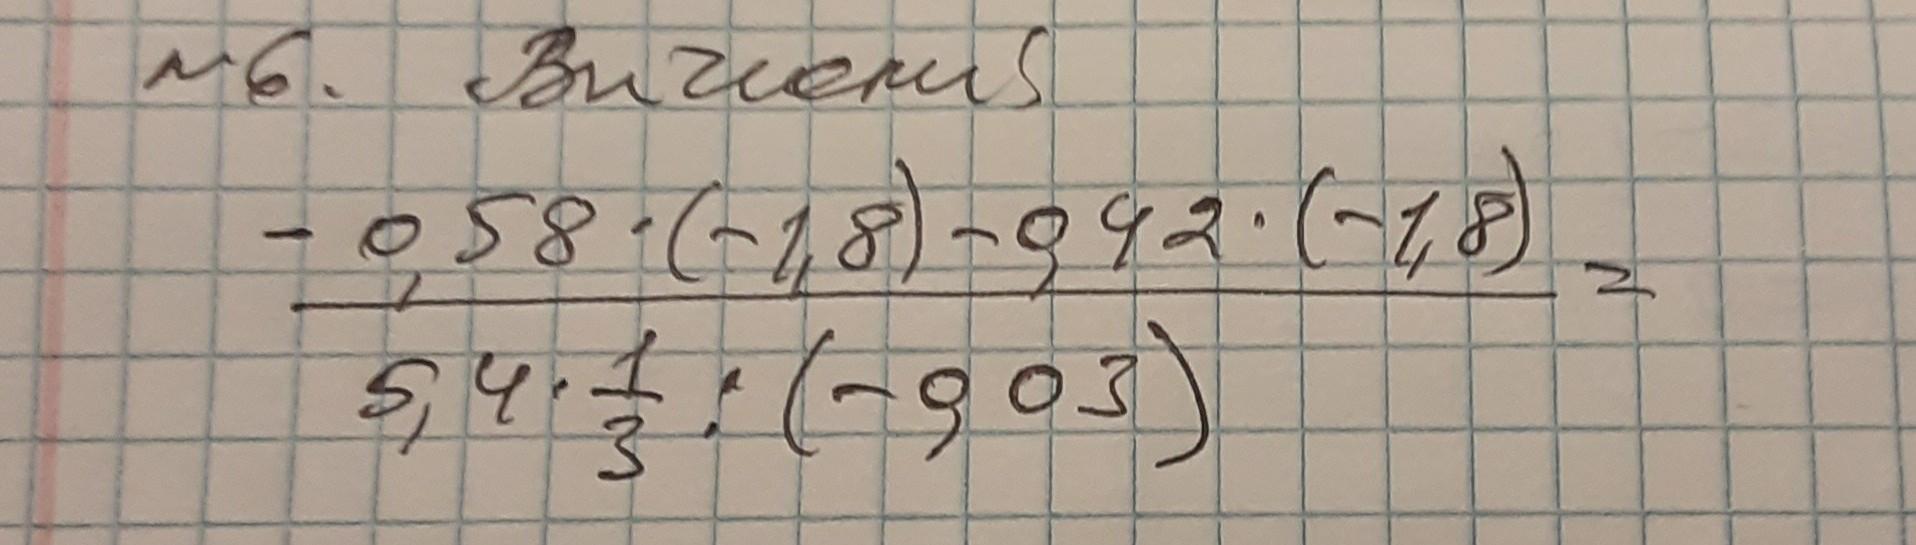 №6. Вычисли
- 0,58 · (-1,8) - 0,42 · (-1,8)
5,4 · 1/3 : (-0,03) =